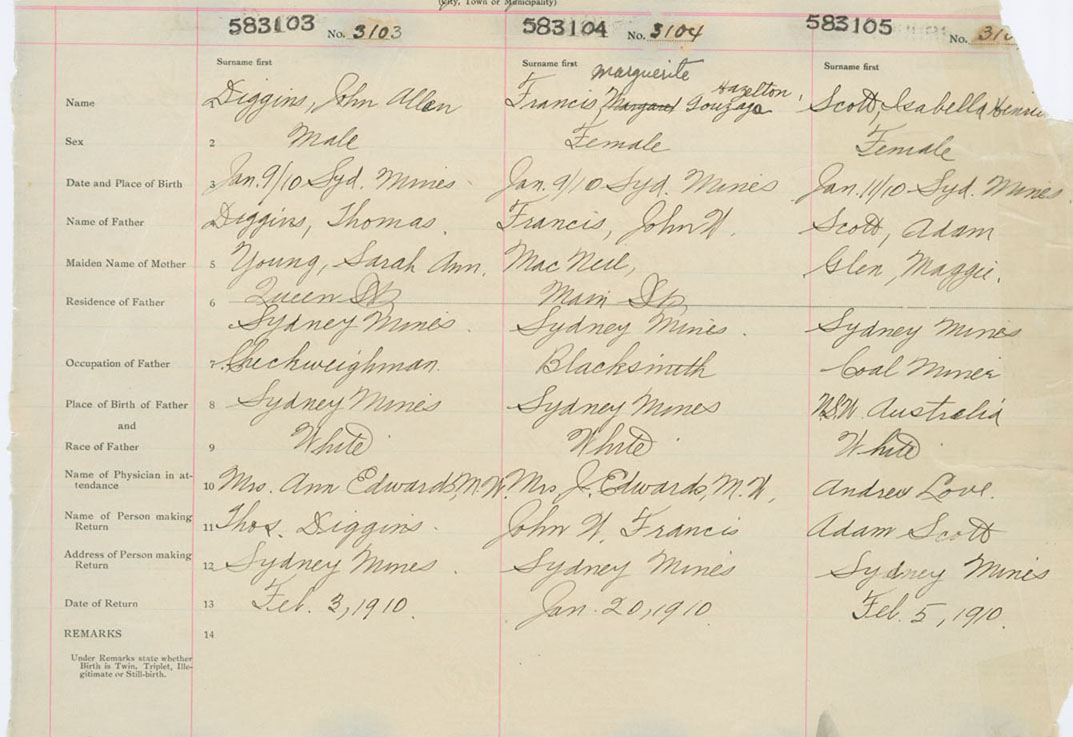 (City, Town or Municipality)
583103 No. 3103 583104 No. 3104 583105 No.
Surname first Surname first Surname first
Marguerite Hazelton
Name 1 Diggins, John Allen Francis, Margaret Gonzaga Scott, Isabella
Sex 2 Male Female Female
Date and Place of Birth 3 Jan. 9/10 Syd. Mines Jan. 9/10 Syd. Mines Jan. 11/10 Syd. Mines
Name of Father 4 Diggins, Thomas. Francis, John W. Scott, Adam
Maiden Name of Mother 5 Young, Sarah Ann. Mac Neil, Glen, Maggie.
Residence of Father 6 Queen St Main St
Sydney Mines. Sydney Mines. Sydney Mines
Occupation of Father 7 Checkweighman. Blacksmith Coal Miner
Place of Birth of Father 8 Sydney Mines Sydney Mines N.S.W. Australia
and
Race of Father 9 White White White
Name of Physician in at-
tendance 10 Mrs. Ann Edwards, M.W. Mrs J. Edwards, M.W. Andrew Love.
Name of Person making
Return 11 Thos. Diggins. John W. Francis Adam Scott
Address of Person making
Return 12 Sydney Mines. Sydney Mines Sydney Mines
Date of Return 13 Feb. 3, 1910. Jan. 20, 1910 Feb. 5, 1910.
REMARKS 14
Under Remarks state whether
Birth is Twin, Triplet, Ille-
gitimate or Still-birth.